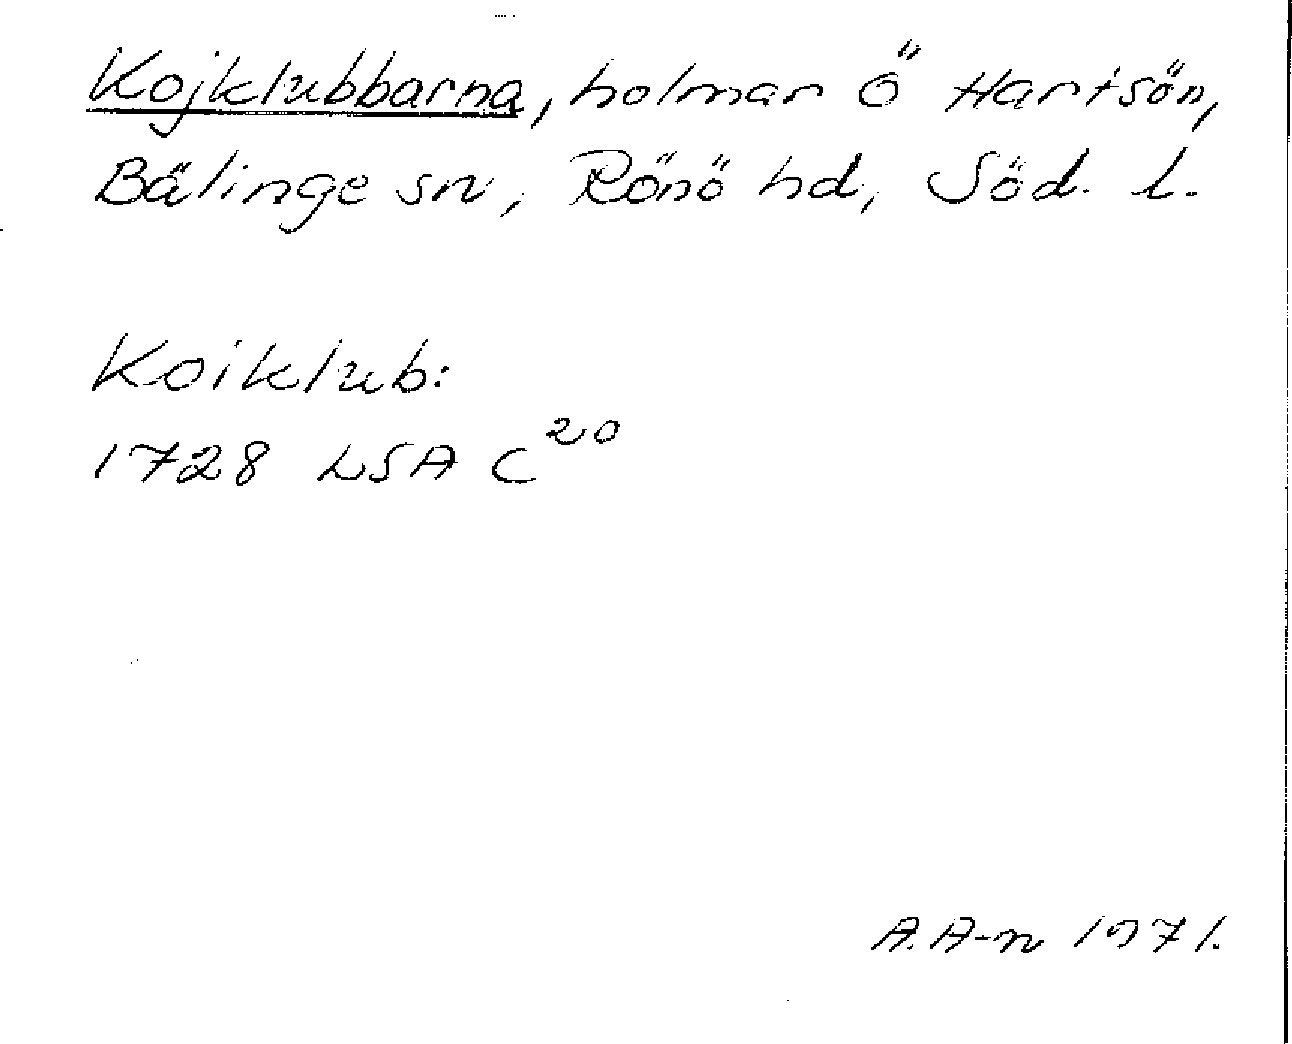 Kojklubbarna, holmar Ö Hartsön,
Bälinge sn, Rönö hd, Söd. l.
Koiklub:
1728 LSA C20
A. A-n 1971.